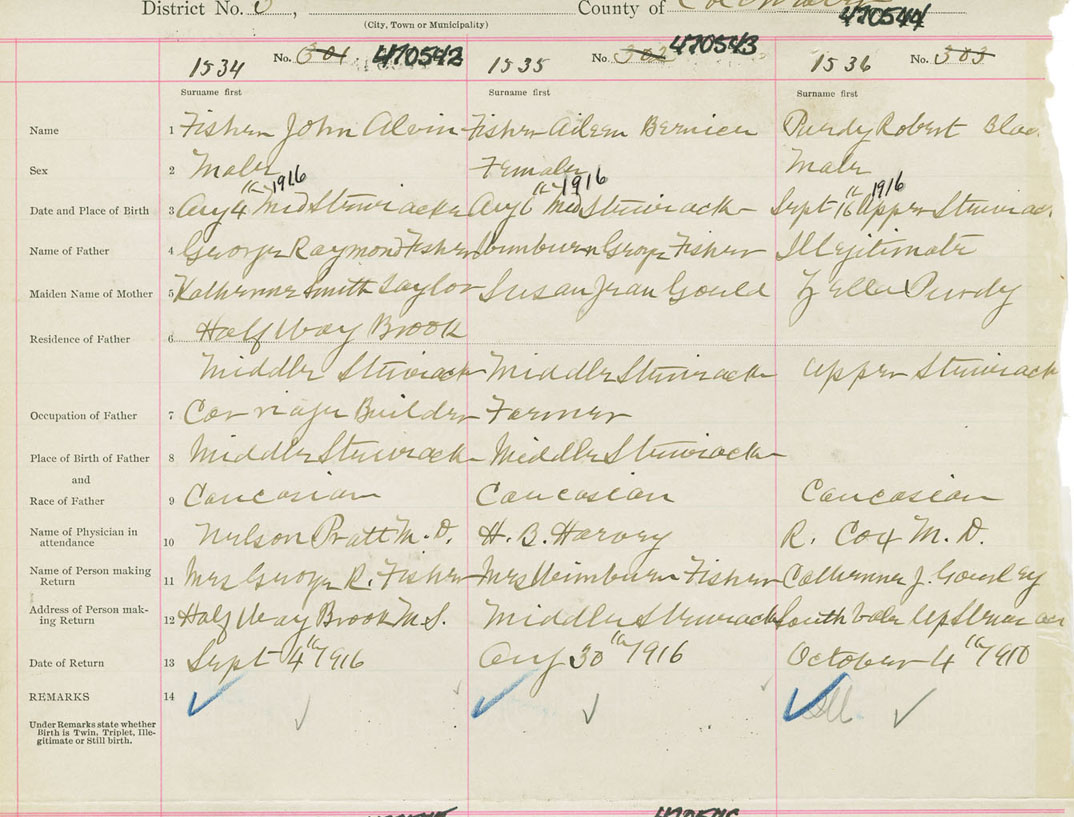 District No. County of
(City, Town or Municipality)
470544
1534 No. 301 470542 1535 No. 302 470543 1536 No. 303
Surname first Surname first Surname first
Name 1 Fisher John Alvin Fisher Aileen Bernice Purdy Robert
Sex 2 Male Female Male
Date and Place of Birth 3 Aug 4th 1916 Mid Stewiacke Aug 6th 1916 Mid Stewiacke Sept 16th 1916 Upper Stewiac
Name of Father 4 George Raymond Fisher Wimburn George Fisher Illegitimate
Maiden Name of Mother 5 Katherine Smith Taylor Susan Jean Gould Zella Purdy
Residence of Father 6 Half Way Brook
Middle Stewiacke Middle Stewiacke Upper Stewiack
Occupation of Father 7 Carriage Builder Farmer
Place of Birth of Father 8 Middle Stewiacke Middle Stewiacke
and
Race of Father 9 Caucasian Caucasian Caucasian
Name of Physician in attendance 10 Nelson Pratt M.D. H. B. Harvey R. Cox M.D.
Name of Person making Return 11 Mrs George R. Fisher Mrs Wimburn Fisher Catherine J. Gourley
Address of Person making Return 12 Half Way Brook M.S. Middle Stewiacke South Vale Up Stewiac
Date of Return 13 Sept 4th 1916 Aug 30th 1916 October 4th 1916
REMARKS 14 Ill
Under Remarks state whether
Birth is Twin, Triplet, Ille-
gitimate or Still birth.